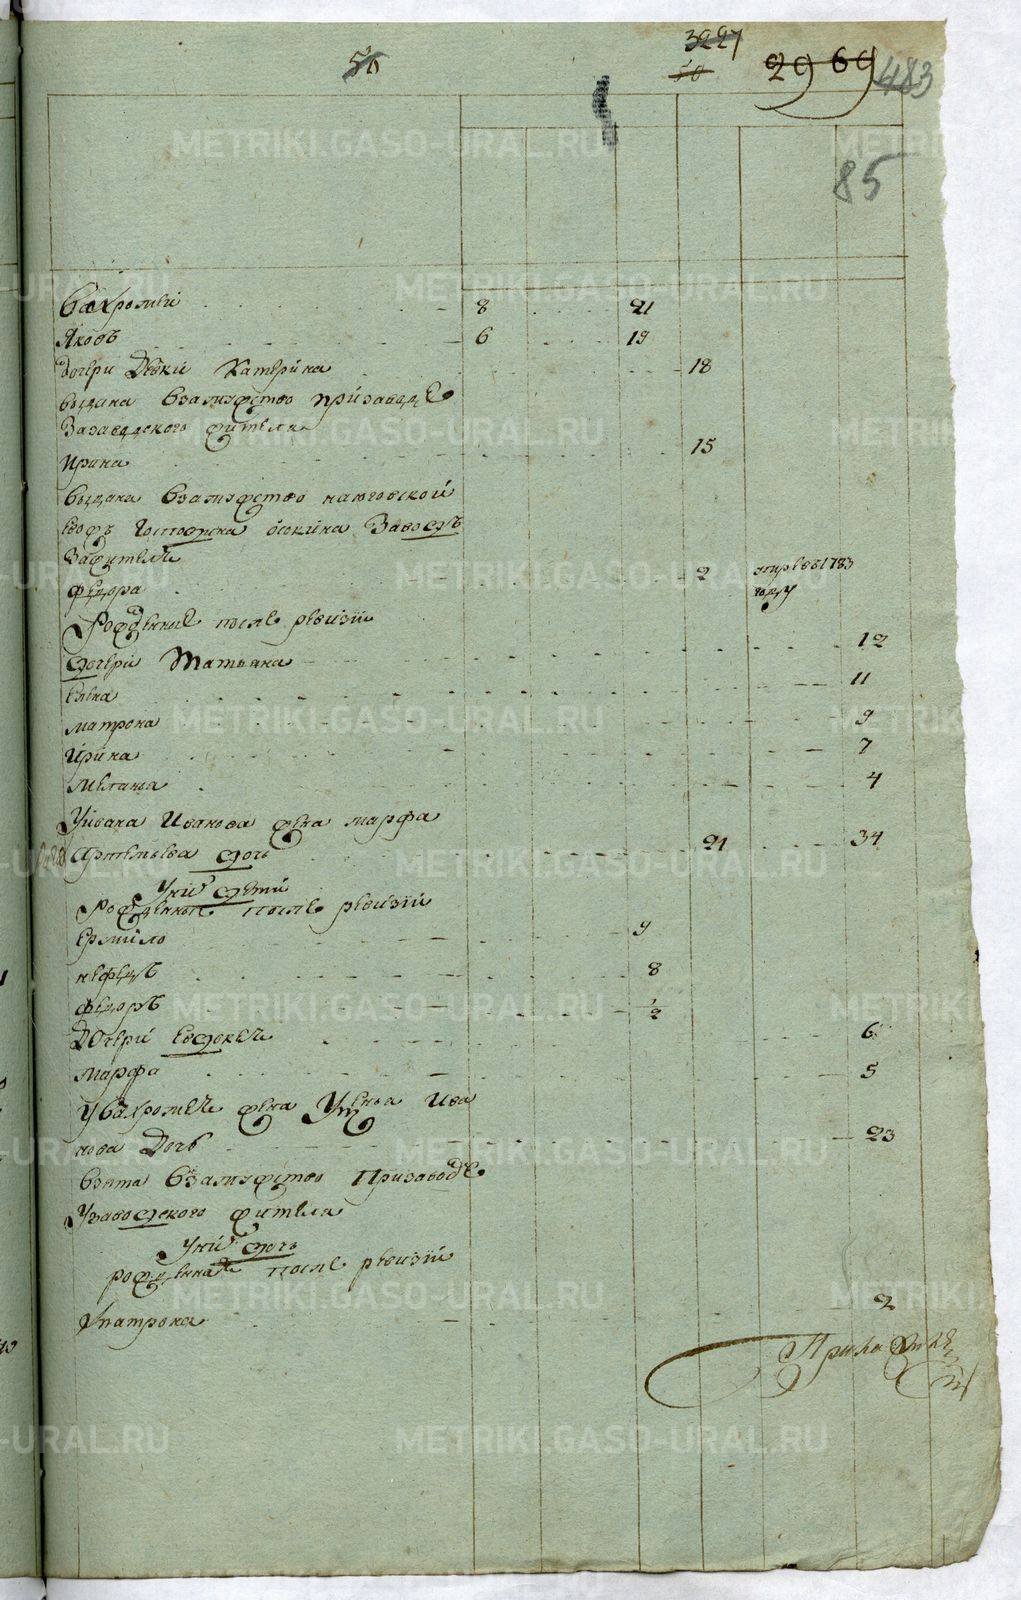 50
3227
50
2969
483
85
Вахромей 8 21
Яковъ 6 19
дочери Девки Катерина 18
выдана взамужство при заводе
За заводского жителя
Ирина 15
выдана взамужство на юговской
Госпожи осокина Заводъ
За жителя
Федора 2 умре в 1783
году
Рожденные после ревизии
дочери Татьяна 12
Елена 11
матрона 9
Ирина 7
Меланья 4
У Ивана Иванова жена марфа
Артемьева дочь 21 34
У них дети
Рожденные после ревизии
Ермило 9
нефедъ 8
Федоръ 1/2
Дочери Евдокея 6
марфа 5
У Вахромея жена Ива
нова Дочь 23
взята взамужство При заводе
У заводского жителя
У них дочь
рожденная после ревизии
матрона 2
METRIKI.GASO-URAL.RU